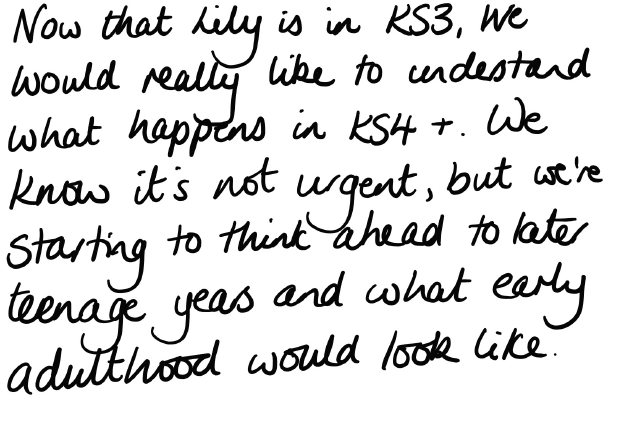 Now that Lily is in KS3, We
would really like to undestand
what happens in KS4 +. We
know it's not urgent, but we're
starting to think ahead to later
teenage yeas and what early
adulthood would look like.